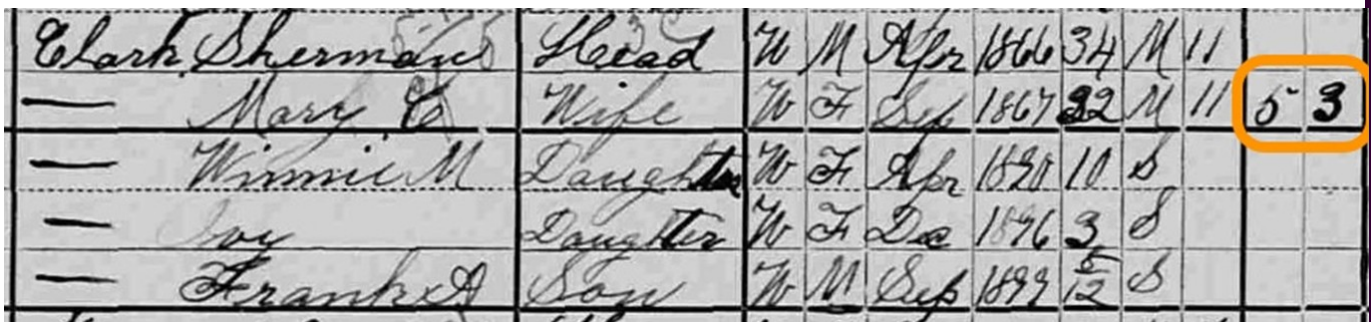 Clark Sherman Head W M Apr 1866 34 M 11
— Mary C Wife W F Sep 1867 32 M 11 5 3
— Winnie M Daughter W F Apr 1890 10 S
— Daughter W F Dec 1896 3 S
— Frank A Son W M Sep 1899 S